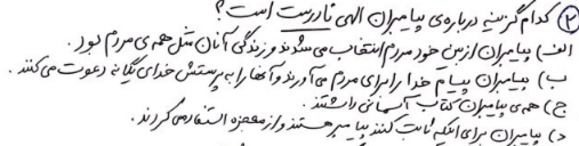 ۲) کدام گزینه درباره‌ی پیامبران الهی نادرست است؟
الف) پیامبران از بین خود مردم انتخاب می‌شدند و زندگی آنان مثل همه‌ی مردم بود.
ب) پیامبران پیام خدا را برای مردم می‌آورند و آنها را به پرستش خدای یگانه دعوت می‌کنند.
ج) همه‌ی پیامبران کتاب آسمانی داشتند.
د) پیامبران برای اینکه ثابت کنند پیامبر هستند از معجزه استفاده می‌کردند.